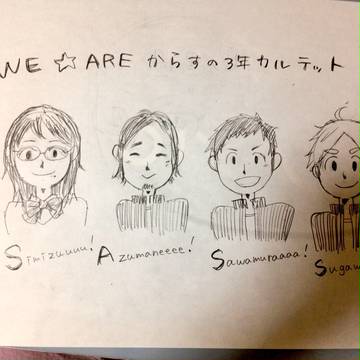 WE ☆ ARE からすの3年カルテット
Simizuuuu! Azumaneeee! Sawamuraaaa! Sugaw